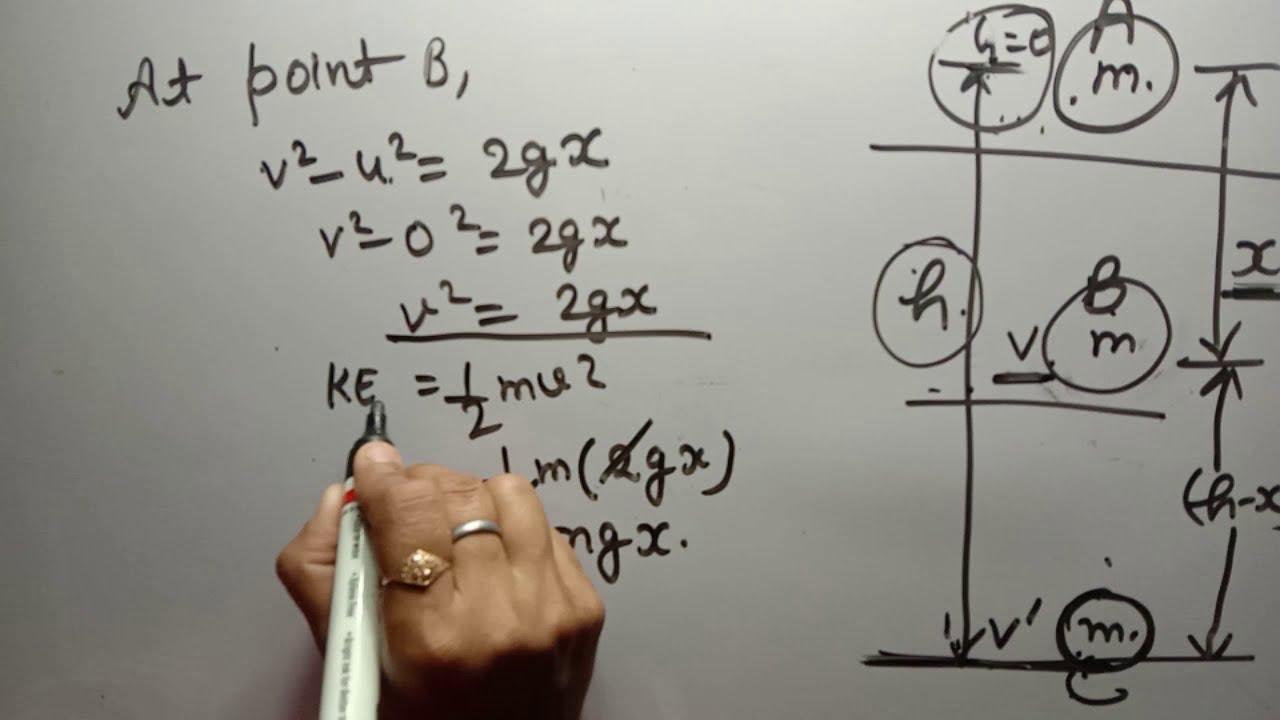 At point B,
v² - u² = 2gx
v² - 0² = 2gx
v² = 2gx
KE = 1/2 mv²
m(2gx)
mgx.
A
m.
x
h.
B
V m
(h-x
V' m.
C